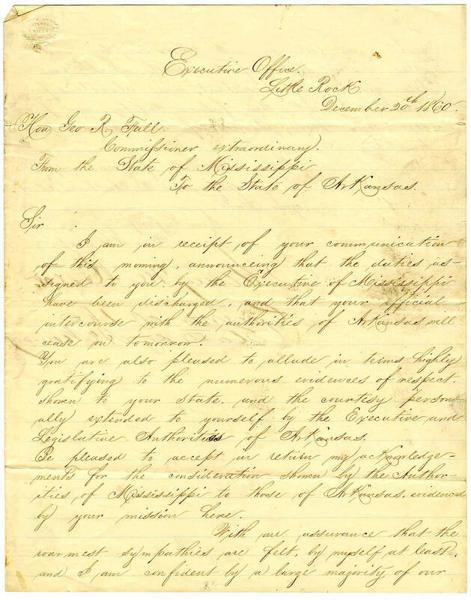 Executive Office.
Little Rock
December 20th 1860.
Hon Geo R. Fall.
Commissioner extraordinary.
From the State of Mississippi
To the State of Arkansas.
Sir
I am in receipt of your communication
of this morning, announcing that the duties as-
signed to you by the Executive of Mississippi
have been discharged, and that your official
intercourse with the authorities of Arkansas will
cease on tomorrow.
You are also pleased to allude in terms highly
gratifying to the numerous evidences of respect,
shown to your State, and the courtesy person-
ally extended to yourself by the Executive and
Legislative Authorities of Arkansas.
Be pleased to accept in return my acknowledge-
ments for the consideration shown by the Author-
ities of Mississippi to those of Arkansas, evidenced
by your mission here.
With an assurance that the
warmest sympathies are felt, by myself at least,
and I am confident by a large majority of our